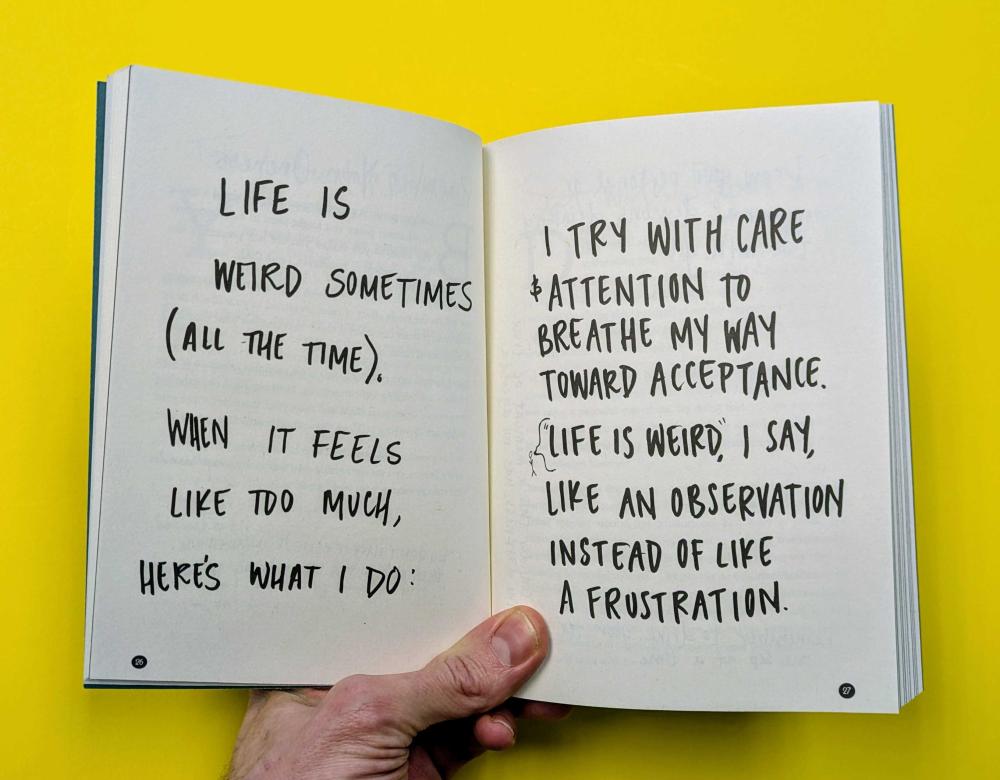 LIFE IS
WEIRD SOMETIMES
(ALL THE TIME).
WHEN IT FEELS
LIKE TOO MUCH,
HERE'S WHAT I DO:
26
I TRY WITH CARE
& ATTENTION TO
BREATHE MY WAY
TOWARD ACCEPTANCE.
"LIFE IS WEIRD," I SAY,
LIKE AN OBSERVATION
INSTEAD OF LIKE
A FRUSTRATION.
27